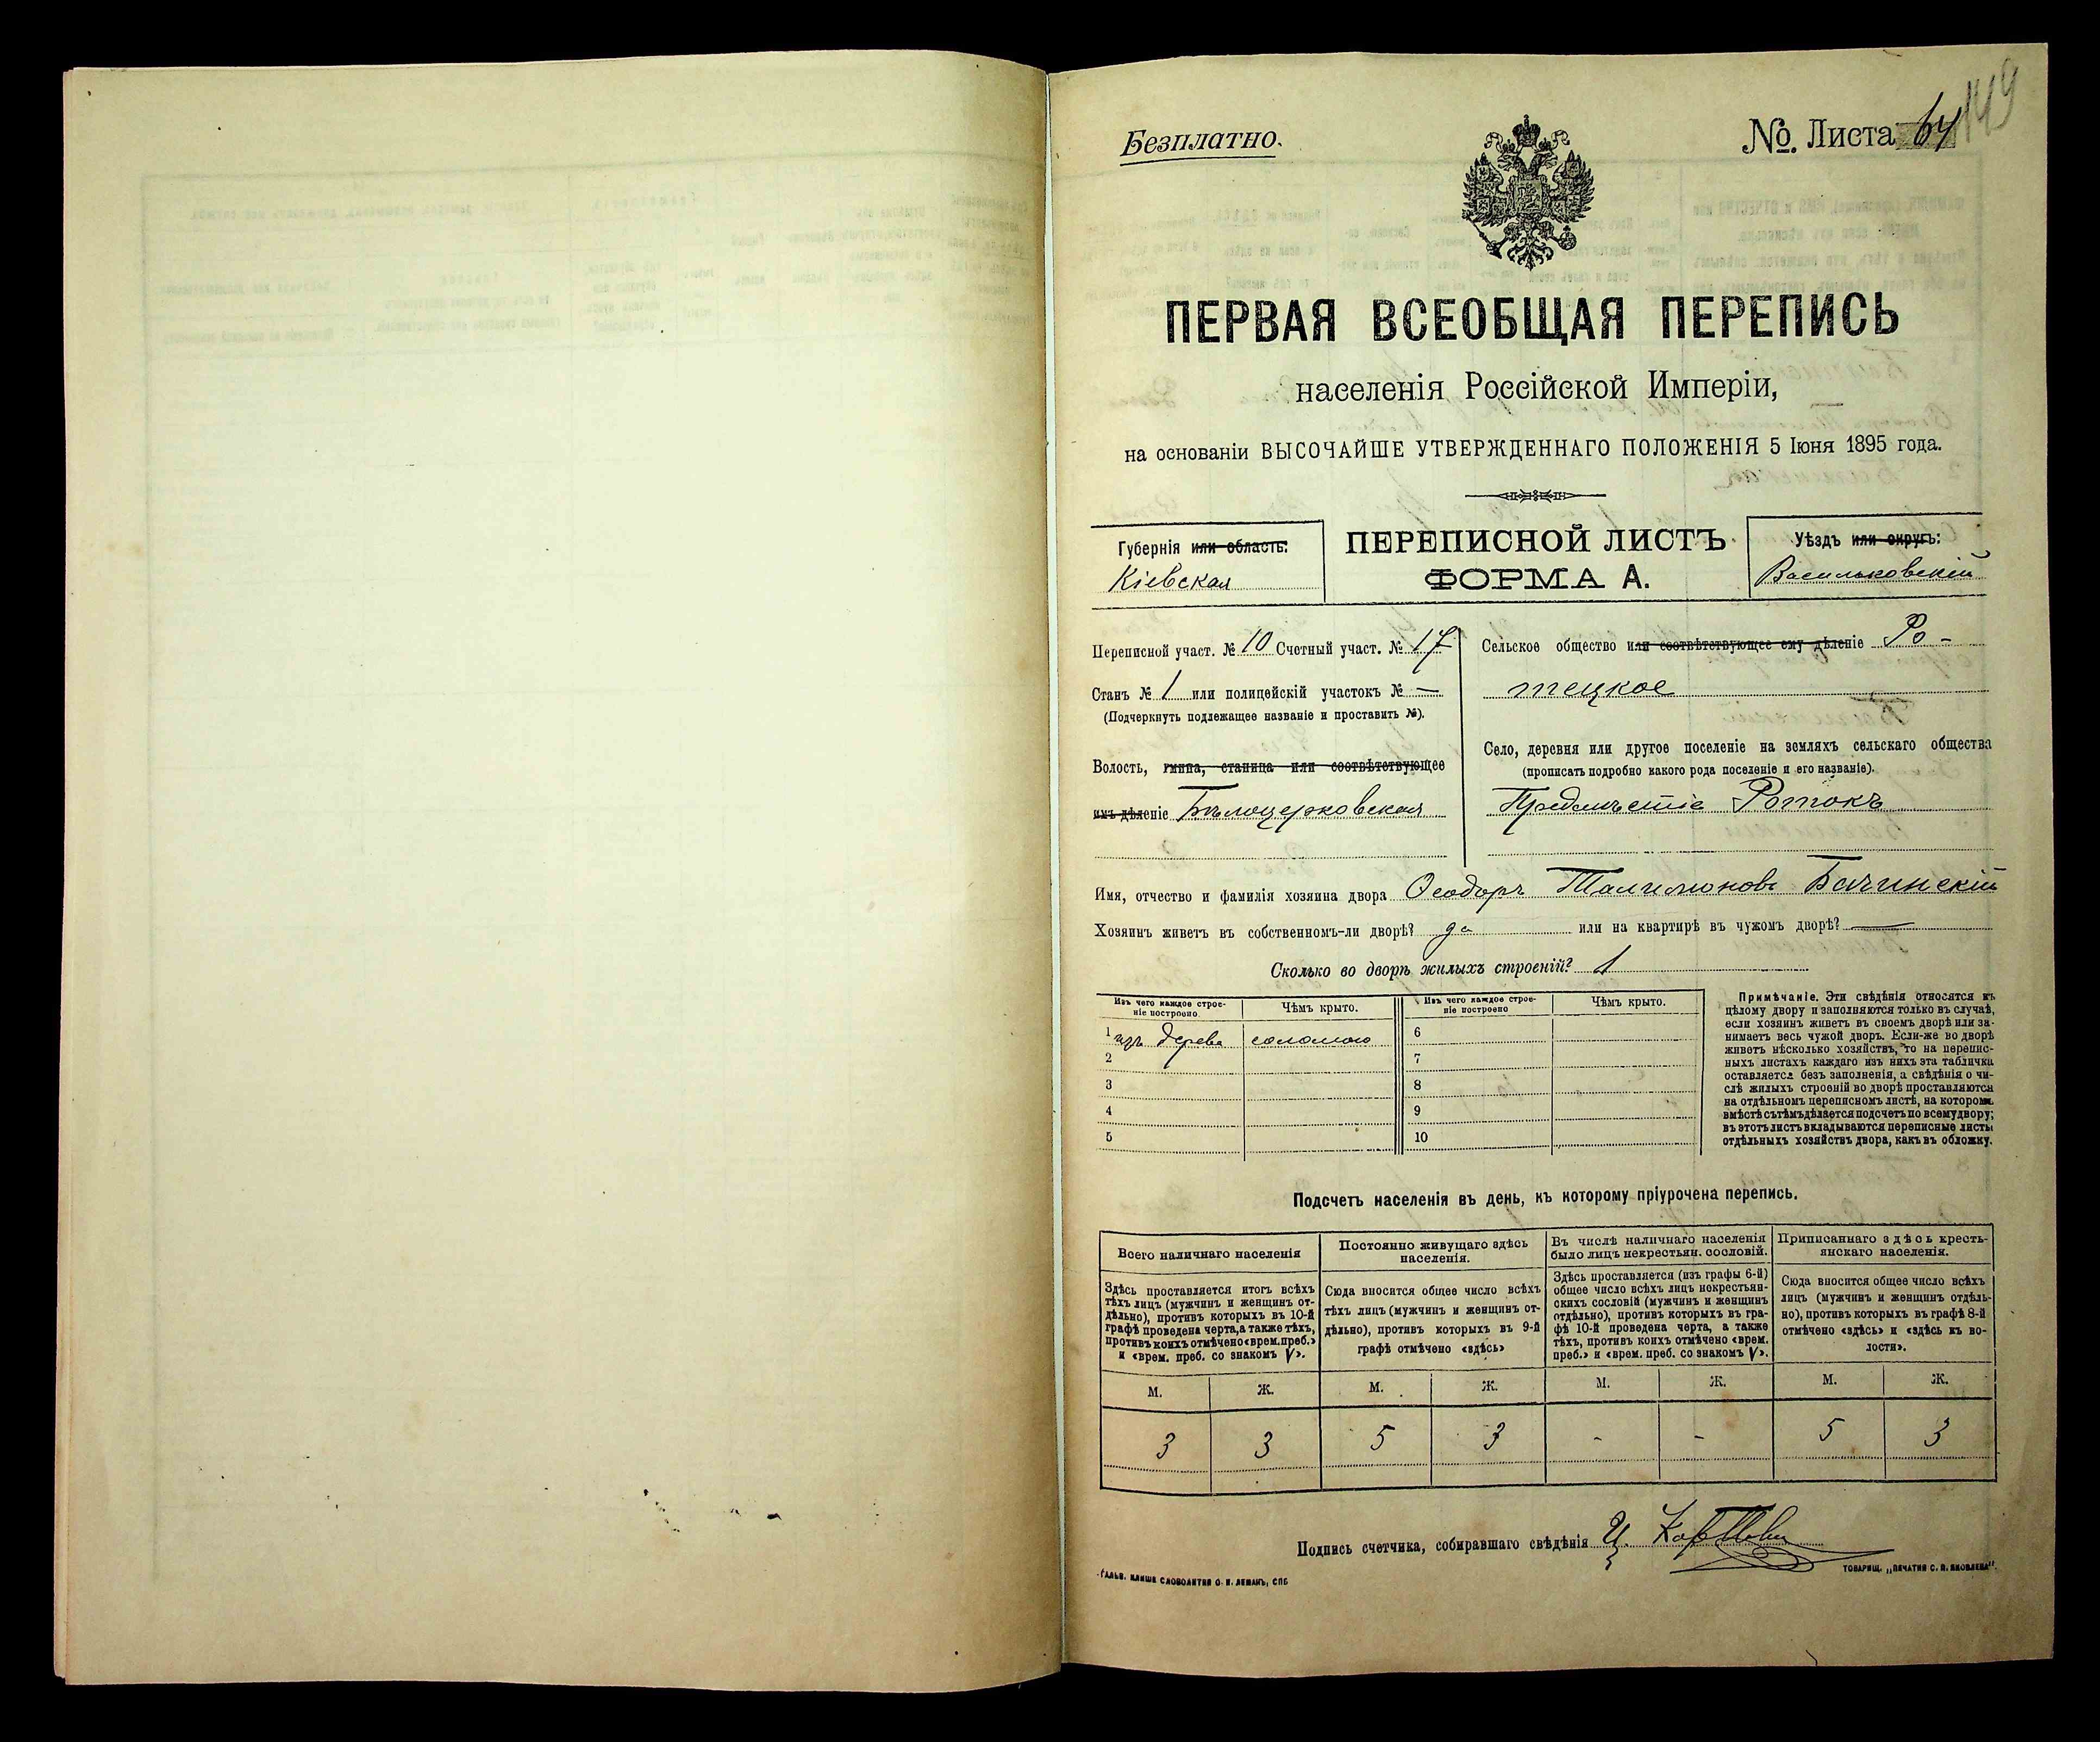 Безплатно.
№ Листа 64
149
ПЕРВАЯ ВСЕОБЩАЯ ПЕРЕПИСЬ
населенія Россійской Имперіи,
на основаніи ВЫСОЧАЙШЕ УТВЕРЖДЕННАГО ПОЛОЖЕНІЯ 5 Іюня 1895 года.
Губернія или область:
Кіевская
ПЕРЕПИСНОЙ ЛИСТЪ
ФОРМА А.
Уѣздъ или округъ:
Васильковскій
Переписной участ. № 10 Счетный участ. № 17
Станъ № 1 или полицейскій участокъ № —
(Подчеркнуть подлежащее названіе и проставить №).
Волость, гмина, станица или соотвѣтствующее
имъ дѣленіе Бѣлоцерковская
Сельское общество или соотвѣтствующее ему дѣленіе Ро-
тецкое
Село, деревня или другое поселеніе на земляхъ сельскаго общества
(прописать подробно какого рода поселеніе и его названіе).
Предмѣстіе Ротокъ
Имя, отчество и фамилія хозяина двора Ѳеодоръ Талимоновъ Бачинскій
Хозяинъ живетъ въ собственномъ-ли дворѣ? да или на квартирѣ въ чужомъ дворѣ? —
Сколько во дворѣ жилыхъ строеній? 1
Изъ чего каждое строе-
ніе построено.
Чѣмъ крыто.
Изъ чего каждое строе-
ніе построено
Чѣмъ крыто.
1 изъ дерева соломою
2
3
4
5
6
7
8
9
10
Примѣчаніе. Эти свѣдѣнія относятся къ
цѣлому двору и заполняются только въ случаѣ,
если хозяинъ живетъ въ своемъ дворѣ или за-
нимаетъ весь чужой дворъ. Если-же во дворѣ
живетъ нѣсколько хозяйствъ, то на перепис-
ныхъ листахъ каждаго изъ нихъ эта табличка
оставляется безъ заполненія, а свѣдѣнія о чи-
слѣ жилыхъ строеній во дворѣ проставляются
на отдѣльномъ переписномъ листѣ, на которомъ
вмѣстѣ съ тѣмъ дѣлается подсчетъ по всему двору;
въ этотъ листъ вкладываются переписные листы
отдѣльныхъ хозяйствъ двора, какъ въ обложку.
Подсчетъ населенія въ день, къ которому пріурочена перепись.
Всего наличнаго населенія
Постоянно живущаго здѣсь
населенія.
Въ числѣ наличнаго населенія
было лицъ некрестьян. сословій.
Приписаннаго здѣсь кресть-
янскаго населенія.
Здѣсь проставляется итогъ всѣхъ
тѣхъ лицъ (мужчинъ и женщинъ от-
дѣльно), противъ которыхъ въ 10-й
графѣ проведена черта, а также тѣхъ,
противъ коихъ отмѣчено «врем. преб.»
и «врем. преб. со знакомъ V».
Сюда вносится общее число всѣхъ
тѣхъ лицъ (мужчинъ и женщинъ от-
дѣльно), противъ которыхъ въ 9-й
графѣ отмѣчено «здѣсь»
Здѣсь проставляется (изъ графы 6-й)
общее число всѣхъ лицъ некрестьян-
скихъ сословій (мужчинъ и женщинъ
отдѣльно), противъ которыхъ въ гра-
фѣ 10-й проведена черта, а также
тѣхъ, противъ коихъ отмѣчено «врем.
преб.» и «врем. преб. со знакомъ V».
Сюда вносится общее число всѣхъ
лицъ (мужчинъ и женщинъ отдѣль-
но), противъ которыхъ въ графѣ 8-й
отмѣчено «здѣсь» и «здѣсь къ во-
лости».
М. Ж. М. Ж. М. Ж. М. Ж.
3 3 5 3 - - 5 3
Подпись счетчика, собиравшаго свѣдѣнія
ГАЛЬВ. КЛИШЕ СЛОВОЛИТНИ О. И. ЛЕМАНЪ, СПБ
ТОВАРИЩ. „ПЕЧАТНЯ С. П. ЯКОВЛЕВА".